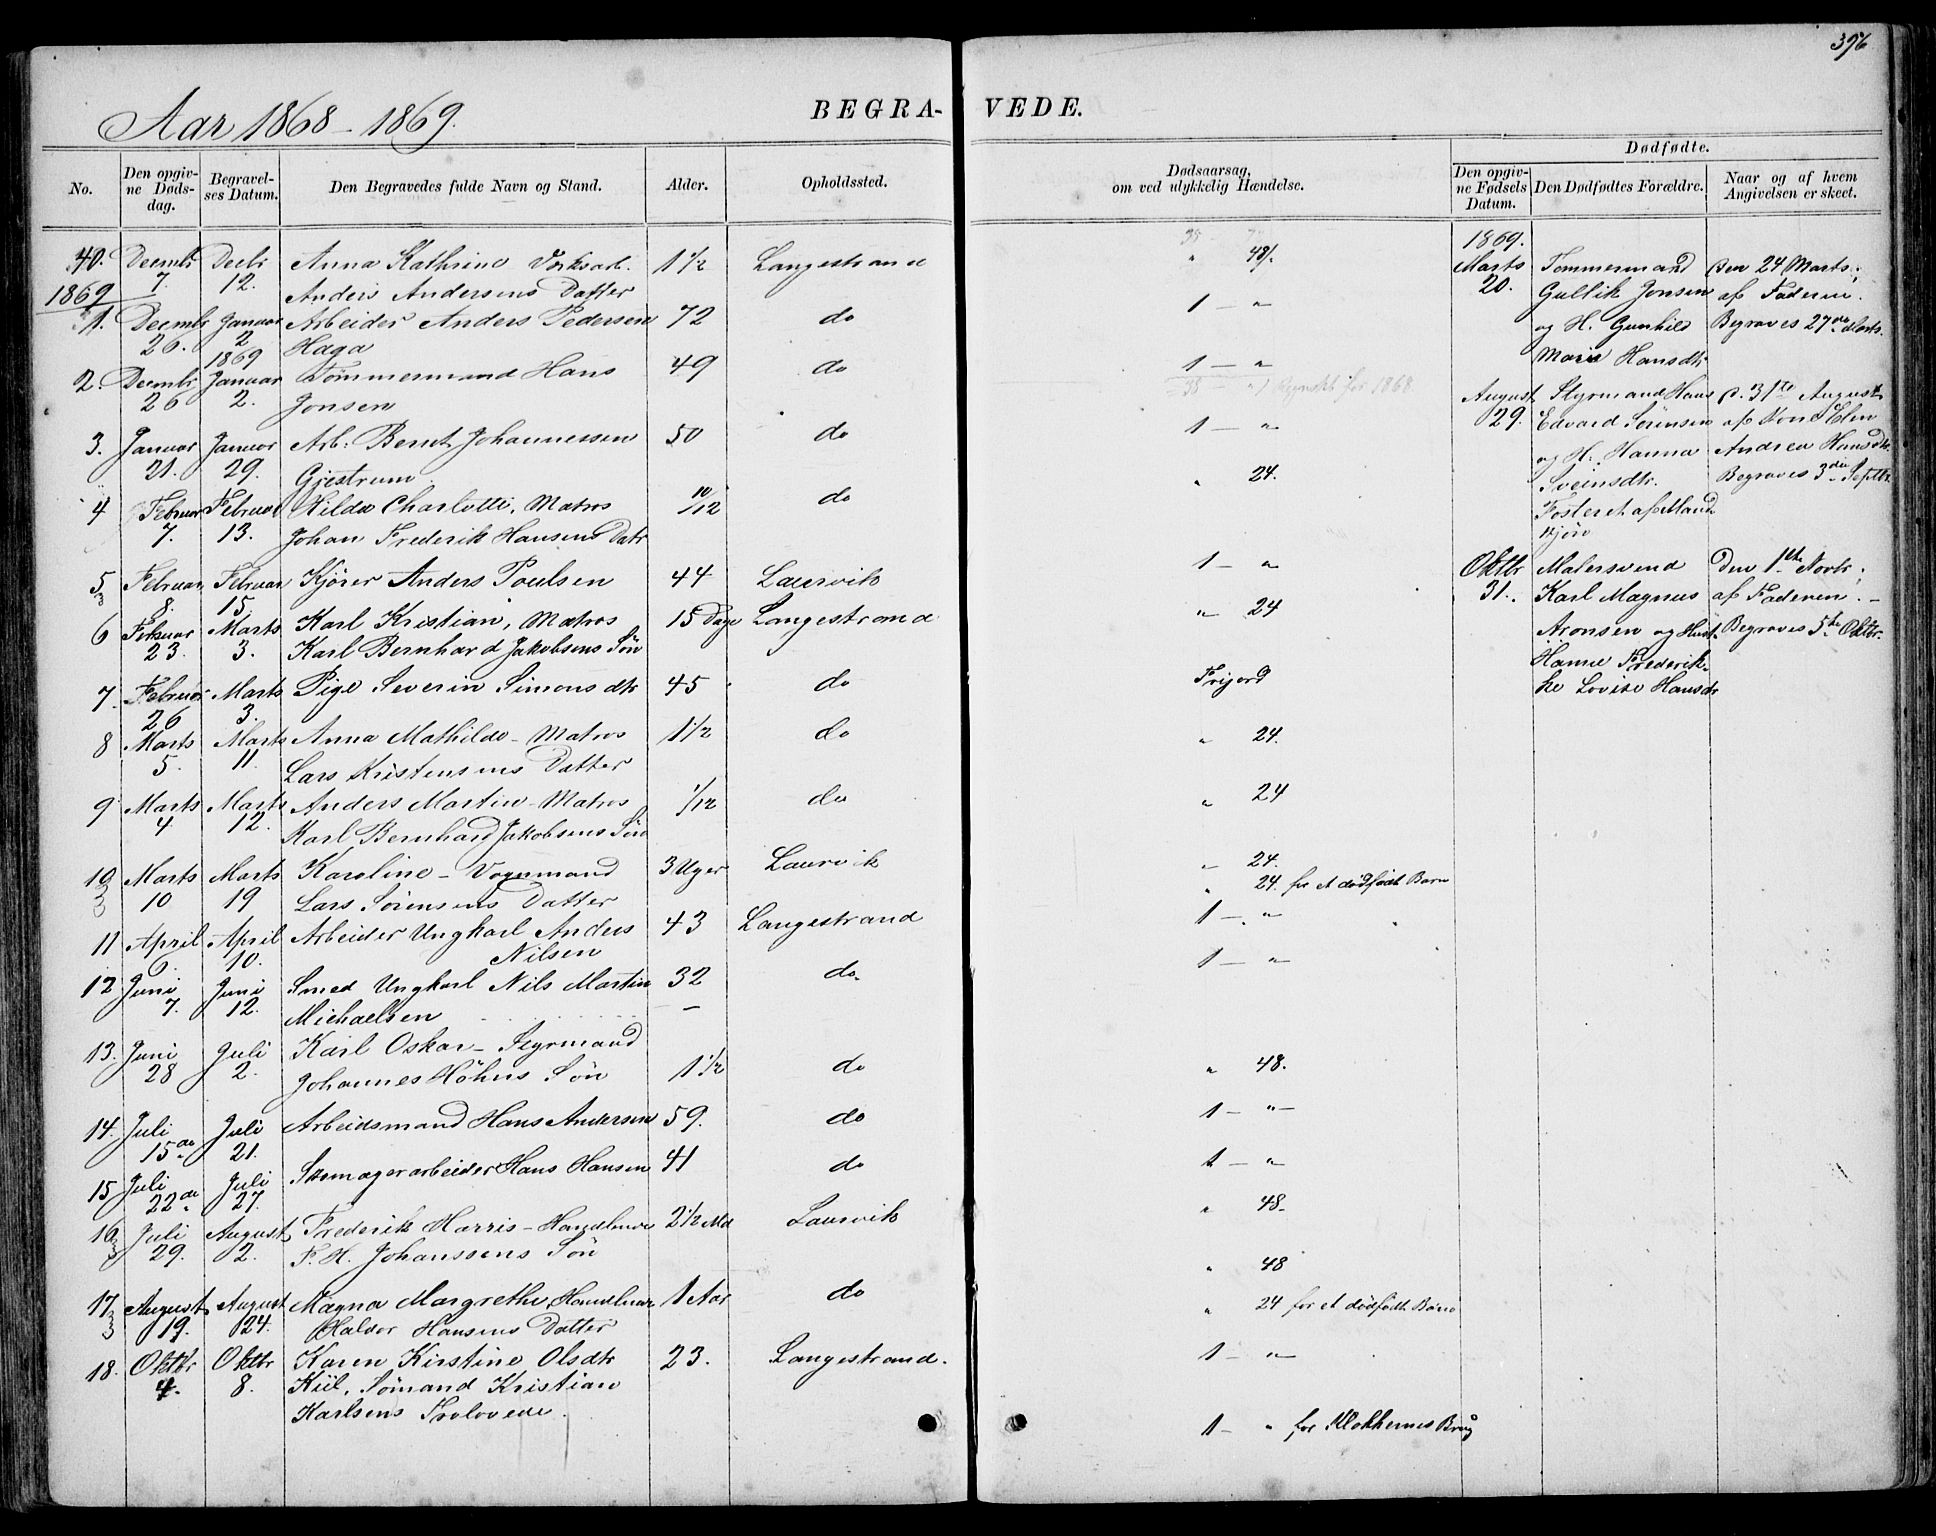 396
Aar 1868 - 1869.
BEGRA- VEDE.
No.
Den opgiv-
ne Døds-
dag.
Begravel-
ses Datum.
Den Begravedes fulde Navn og Stand.
Alder.
Opholdssted.
Dødsaarsag,
om ved ulykkelig Hændelse.
Dødfødte.
Den opgiv-
ne Fødsels
Datum.
Den Dødfødtes Forældre.
Naar og af hvem
Angivelsen er skeet.
40. Decmbr Decbr Anna Kathrine 1 1/2 Langestrand " 48/.
7. 12. Anders Andersens Datter
1869
1. Decmbr Januar Arbeider Anders Pedersen 72 do 1 - "
26. 2 Haga
1869
2. Decmbr Januar Tømmermand Hans 49 do 1 - "
26 2. Jonsen
for 1868
3. Januar Januar Arb: Bernt Johannessen 50 do 1 - "
21. 29. Gjestrum
4 Februar Februar Hilda Charlotte, Matros 10/12 do " 24.
7. 13. Johan Frederik Hansens Datr
5 Februar Februar Kjører Anders Poulsen 44 Laurvik 1 - "
3 8. 15.
6 Februar Marts Karl Kristian, Matros 15 Dage Langestrand " 24
23. 3. Karl Bernhard Jakobsens Søn
7. Februar Marts Pige Severin Simonsdtr 45 do Frijord
26 3.
8 Marts Marts Anna Mathilde - Matros 1 1/2 do " 24.
5. 11. Lars Kristensens Datter
9 Marts Marts Anders Martin - Matros 1/12 do " 24
4. 12. Karl Bernhard Jakobsens Søn
10 Marts Marts Karoline - Vognmand 3 Uger Laurvik " 24.
3 10 19 Lars Sørensens Datter " 24. for et dødfødt Barn
11 April April Arbeider Ungkarl Anders 43 Langestrand 1 - "
6. 10. Nilsen
12 Juni Juni Smed Ungkarl Nils Martin 32 do 1 - "
7. 12. Michaelsen -
13. Juni Juli Karl Oskar - Styrmand
28 2. Johannes Höhns Søn 1 1/2 do " 48.
14. Juli Juli Arbeidsmand Hans Andersen 59. do 1 - "
15de 21.
15 Juli Juli Skomagerarbeider Hans Hansen 41 do 1 - "
22de 27.
16 Juli August Frederik Harris - 2 1/2 Md Laurvik " 48
3 29. 2. F. H. Johanssens Søn
17 August August Magna Margrethe, 1 Aar do " 48
3 19. 24. Halvor Hansens Datter " 24 for et dødfødt Barn
18. Oktbr Oktbr Karen Kirstine Olsdtr 23. Langestrand. 1 - "
4. 8. Kiil, Sømand Kristian
Karlsens Trolovede.
1 - " for Klokkernes Brug
1869.
Marts Tømmermand Den 24 Marts;
20. Gullik Jonsen af Faderen.
og H. Gunhild Begraves 27de Marts.
Maria Hansdtr
August Styrmand Hans D. 31te August
29. Edvard Sørensen af
og H. Hanna Andrea Hansdtr.
Sveinsdtr. Begraves 3die Septbr.
Fosteret af Mand
kjøn
Oktbr Malersvend Den 1ste Novbr;
31. Karl Magnus af Faderen. -
Aronsen og Hust. Begraves 5te Oktbr.
Hanne Frederik-
ke Lovise Hansdtr